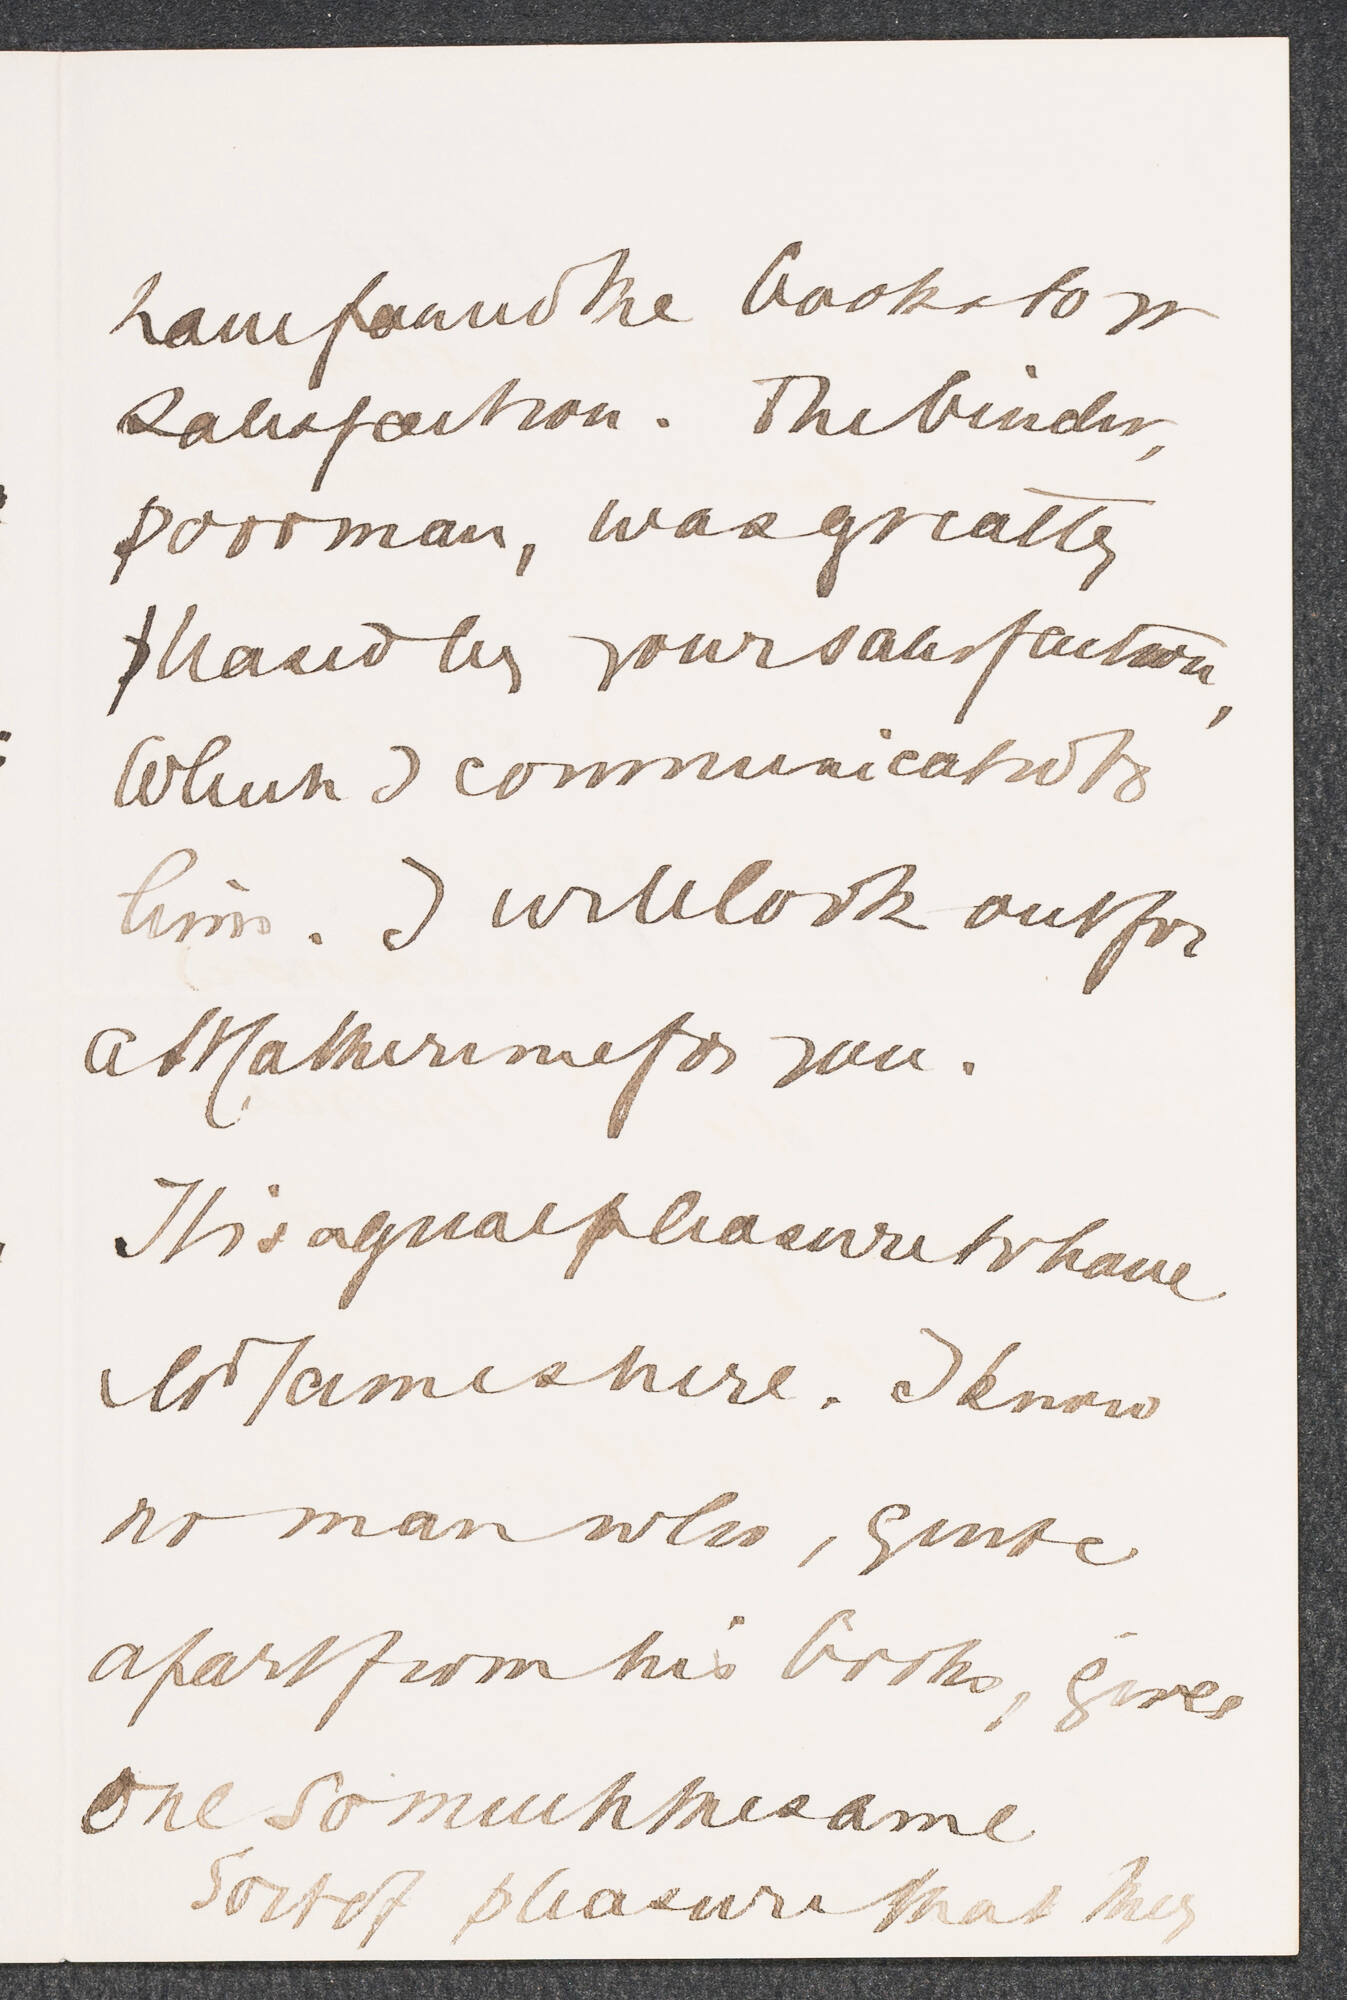 have found the books to yr
satisfaction. The binder,
poor man, was greatly
pleased by your satisfaction,
which I communicated to
him. I will look out for
a Katherine for you.
It is a great pleasure to have
Wm James here. I know
no man who, quite
apart from his books, gives
one so much the same
sort of pleasure that they